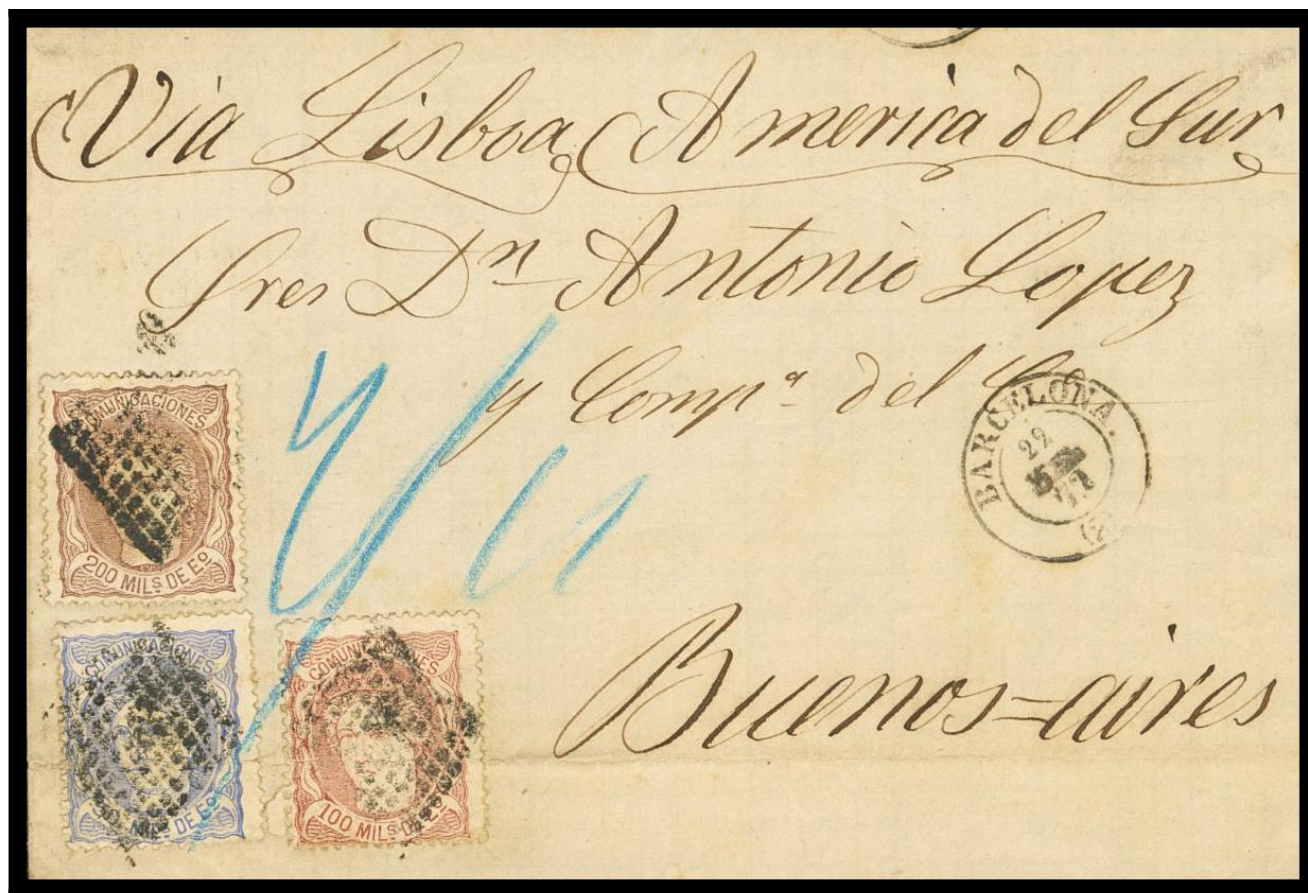 Via Lisboa America del Sur
Sres Dn Antonio Lopez
y Compª del C
BARCELONA.
22
(2)
COMUNICACIONES
200 MILS DE EO
Buenos=aires
COMUNICACIONES
MILS DE EO
COMUNICACIONES
100 MILS DE EO